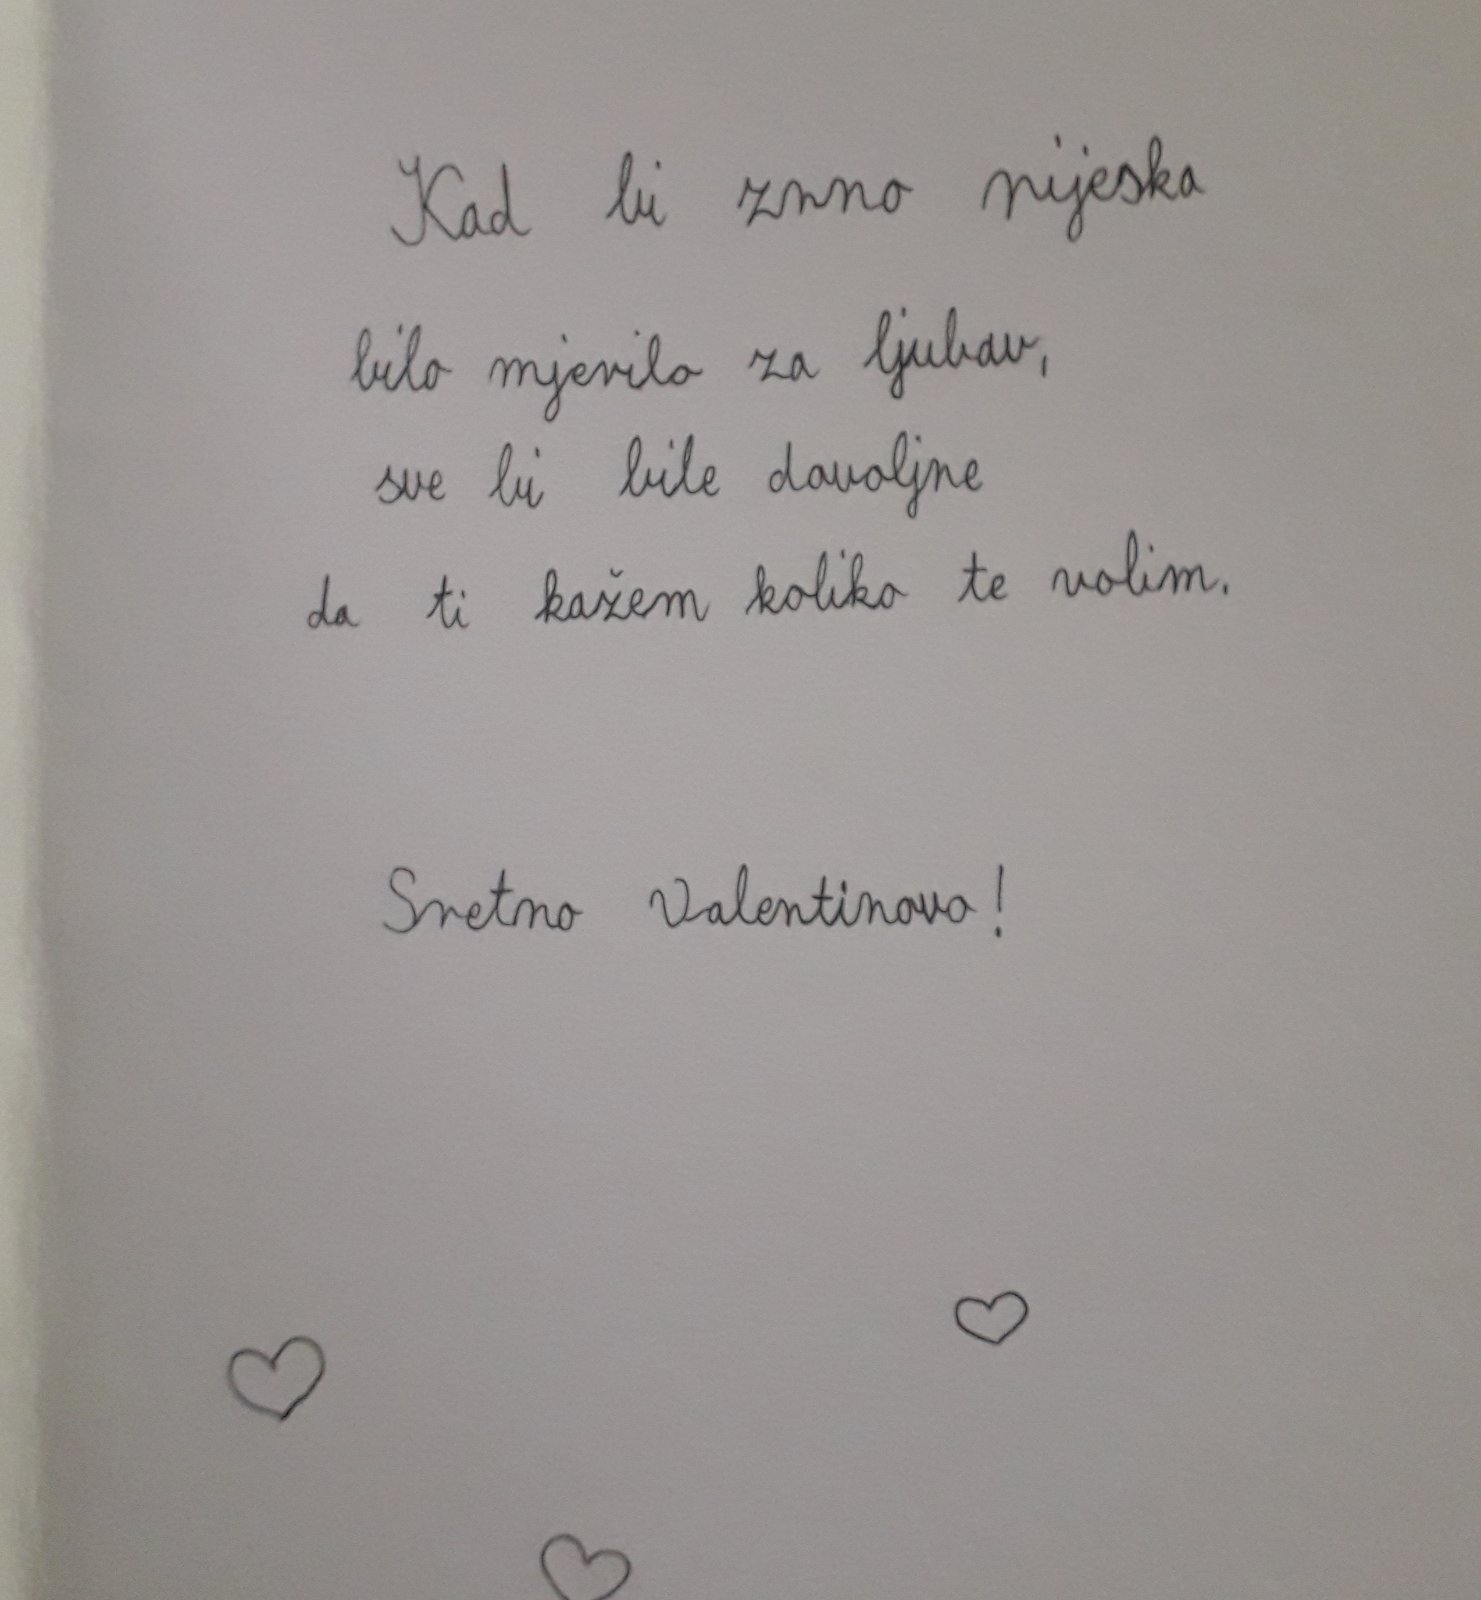 Kad bi zrno pijeska
bilo mjerilo za ljubav,
sve bi bile dovoljne
da ti kažem koliko te volim.
Sretno Valentinovo!